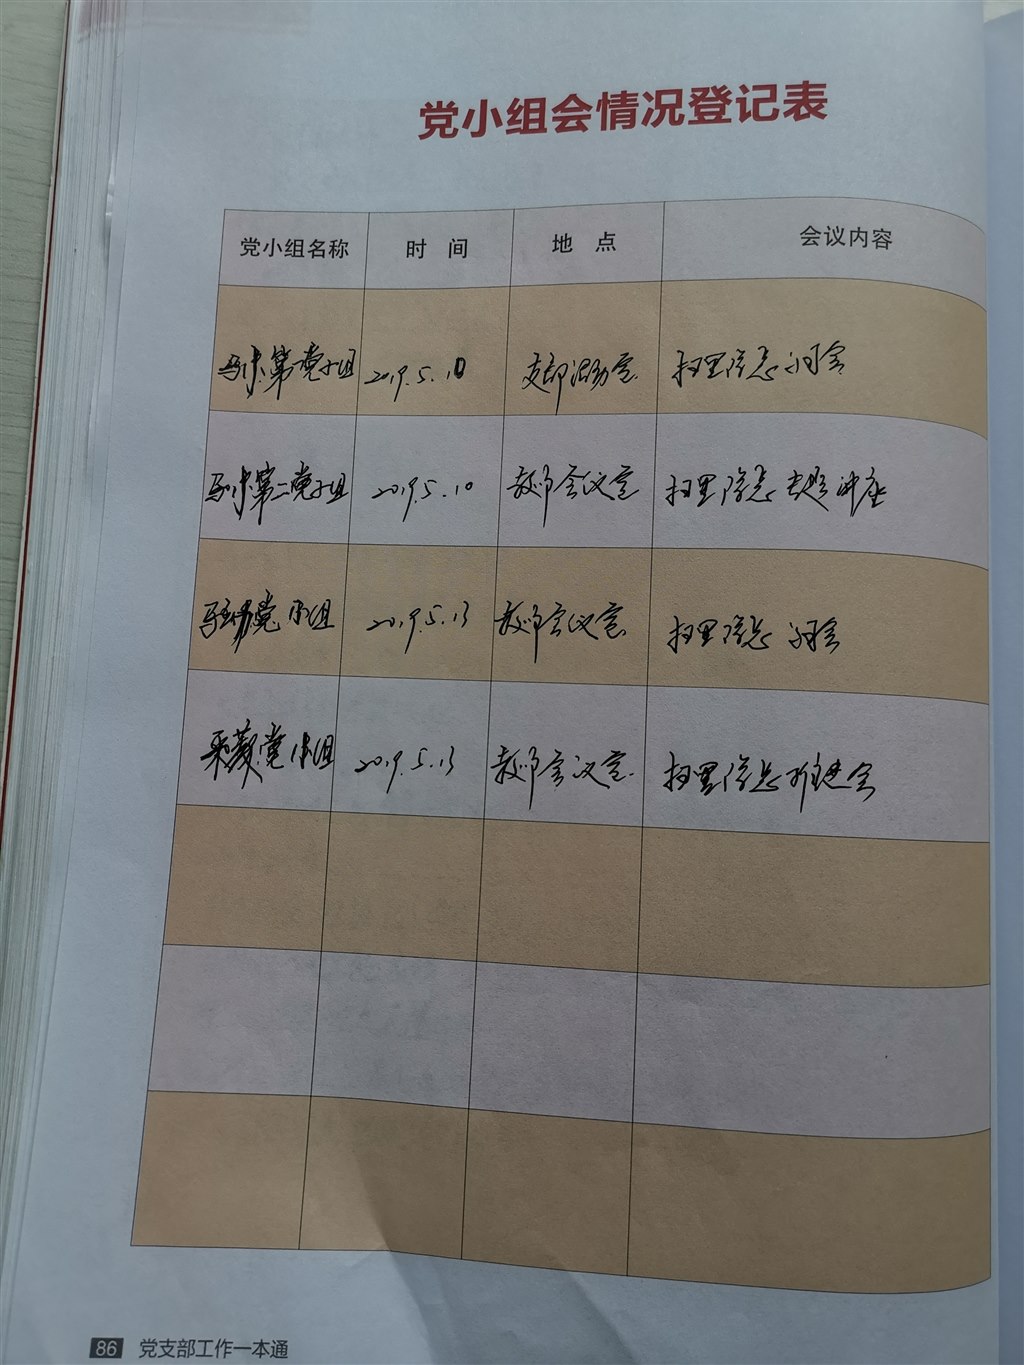 党小组会情况登记表
党小组名称 时 间 地 点 会议内容
第一党小组 2019.5.10 支部活动室 扫黑除恶 会
第二党小组 2019.5.10 教师会议室 扫黑除恶 专题讲座
党小组 2019.5.13 教师会议室 扫黑除恶 会
采薇党小组 2019.5.13 教师会议室 扫黑除恶推进会
86 党支部工作一本通